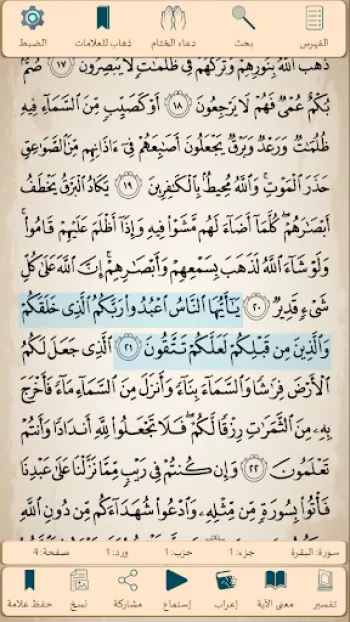 الفهرس
بحث
دعاء الختام
ذهاب للعلامات
الضبط
ذَهَبَ ٱللَّهُ بِنُورِهِمْ وَتَرَكَهُمْ فِى ظُلُمَٰتٍ لَّا يُبْصِرُونَ ﴿١٧﴾ صُمٌّۢ
بُكْمٌ عُمْىٌ فَهُمْ لَا يَرْجِعُونَ ﴿١٨﴾ أَوْ كَصَيِّبٍ مِّنَ ٱلسَّمَآءِ فِيهِ
ظُلُمَٰتٌ وَرَعْدٌ وَبَرْقٌ يَجْعَلُونَ أَصَٰبِعَهُمْ فِىٓ ءَاذَانِهِم مِّنَ ٱلصَّوَٰعِقِ
حَذَرَ ٱلْمَوْتِ ۚ وَٱللَّهُ مُحِيطٌۢ بِٱلْكَٰفِرِينَ ﴿١٩﴾ يَكَادُ ٱلْبَرْقُ يَخْطَفُ
أَبْصَٰرَهُمْ ۖ كُلَّمَآ أَضَآءَ لَهُم مَّشَوْا۟ فِيهِ وَإِذَآ أَظْلَمَ عَلَيْهِمْ قَامُوا۟ ۚ
وَلَوْ شَآءَ ٱللَّهُ لَذَهَبَ بِسَمْعِهِمْ وَأَبْصَٰرِهِمْ ۚ إِنَّ ٱللَّهَ عَلَىٰ كُلِّ
شَىْءٍ قَدِيرٌ ﴿٢٠﴾ يَٰٓأَيُّهَا ٱلنَّاسُ ٱعْبُدُوا۟ رَبَّكُمُ ٱلَّذِى خَلَقَكُمْ
وَٱلَّذِينَ مِن قَبْلِكُمْ لَعَلَّكُمْ تَتَّقُونَ ﴿٢١﴾ ٱلَّذِى جَعَلَ لَكُمُ
ٱلْأَرْضَ فِرَٰشًا وَٱلسَّمَآءَ بِنَآءً وَأَنزَلَ مِنَ ٱلسَّمَآءِ مَآءً فَأَخْرَجَ
بِهِۦ مِنَ ٱلثَّمَرَٰتِ رِزْقًا لَّكُمْ ۖ فَلَا تَجْعَلُوا۟ لِلَّهِ أَندَادًا وَأَنتُمْ
تَعْلَمُونَ ﴿٢٢﴾ وَإِن كُنتُمْ فِى رَيْبٍ مِّمَّا نَزَّلْنَا عَلَىٰ عَبْدِنَا
فَأْتُوا۟ بِسُورَةٍ مِّن مِّثْلِهِۦ وَٱدْعُوا۟ شُهَدَآءَكُم مِّن دُونِ ٱللَّهِ
سورة: البقرة جزء: 1 حزب: 1 ورد: 1 صفحة: 4
تفسير
معنى الآية
إعراب
إستماع
مشاركة
نسخ
حفظ علامة